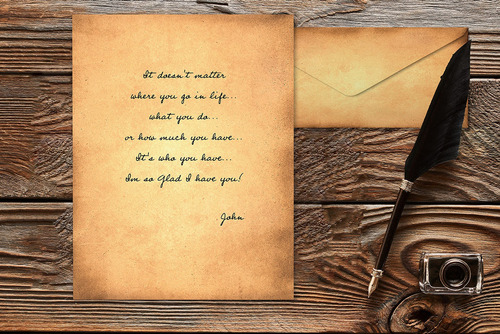 It doesn't matter
where you go in life...
what you do...
or how much you have...
It's who you have...
Im so Glad I have you!
John